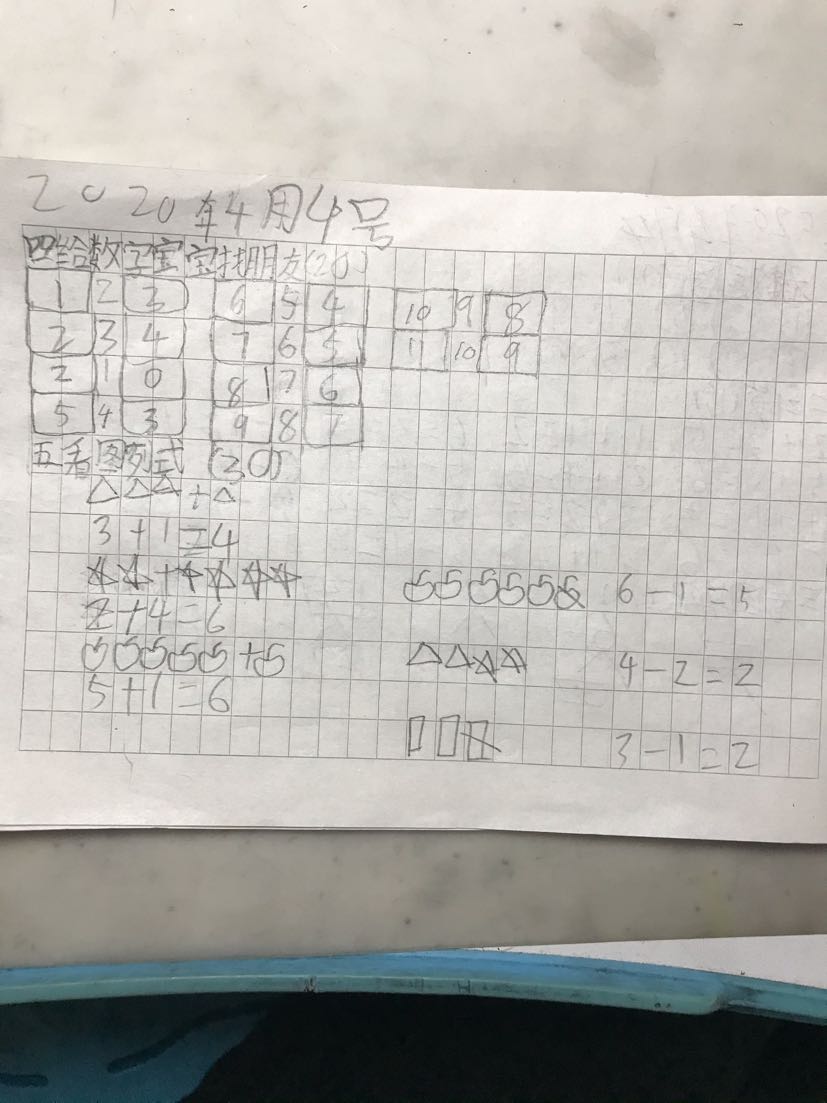 2020年4月4号
四给数字宝宝找朋友(20)
1 2 3 6 5 4 10 9 8
2 3 4 7 6 5 11 10 9
2 1 0 8 7 6
5 4 3 9 8 7
五看图列式(30)
+
3+1=4
+
2+4=6 6-1=5
+
5+1=6 4-2=2
3-1=2